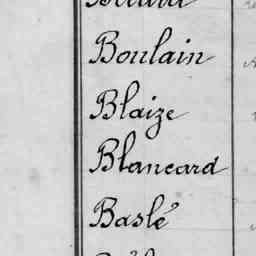 Boulain
Blaize
Blancard
Baslé